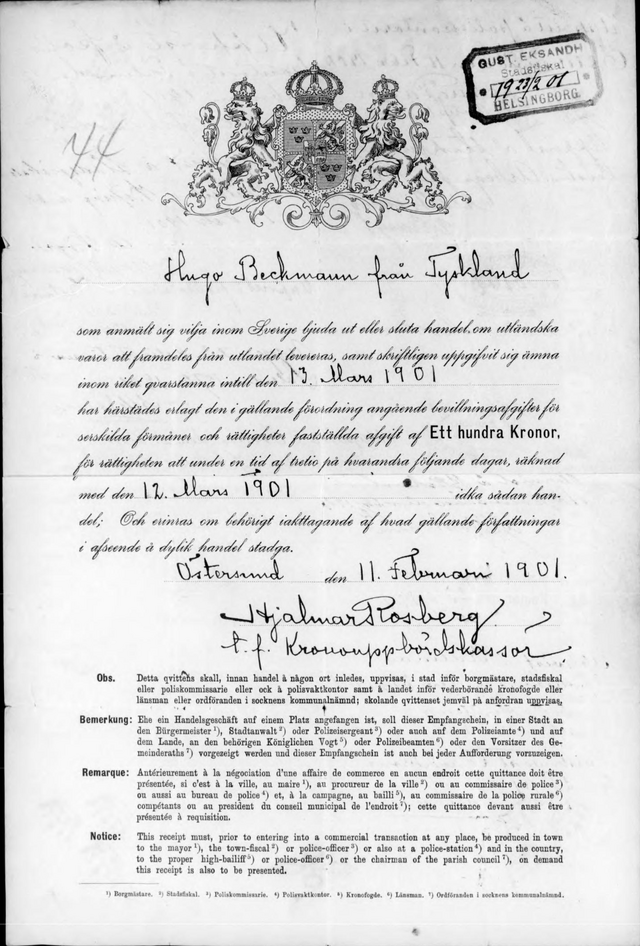 GUST. EKSANDH
Stadsfiskal
19 23/2 01
HELSINGBORG
44
Hugo Beckmann från Tyskland
som anmält sig vilja inom Sverige bjuda ut eller sluta handel om utländska
varor att framdeles från utlandet levereras, samt skriftligen uppgifvit sig ämna
inom riket qvarstanna intill den 13. Mars 1901
har härstädes erlagt den i gällande förordning angående bevillningsafgifter för
serskilda förmåner och rättigheter fastställda afgift af Ett hundra Kronor,
för rättigheten att under en tid af tretio på hvarandra följande dagar, räknad
med den 12. Mars 1901 idka sådan han-
del; Och erinras om behörigt iakttagande af hvad gällande författningar
i afseende å dylik handel stadga.
Östersund den 11. Februari 1901.
Hjalmar Rosberg
t. f. Kronouppbördskassör
Obs. Detta qvittens skall, innan handel å någon ort inledes, uppvisas, i stad inför borgmästare, stadsfiskal
eller poliskommissarie eller ock å polisvaktkontor samt å landet inför vederbörande kronofogde eller
länsman eller ordföranden i socknens kommunalnämnd; skolande qvittenset jemväl på anfordran uppvisas,
Bemerkung: Ehe ein Handelsgeschäft auf einem Platz angefangen ist, soll dieser Empfangschein, in einer Stadt an
den Bürgermeister ¹), Stadtanwalt ²) oder Polizeisergeant ³) oder auch auf dem Polizeiamte ⁴) und auf
dem Lande, an den behörigen Königlichen Vogt ⁵) oder Polizeibeamten ⁶) oder den Vorsitzer des Ge-
meinderaths ⁷) vorgezeigt werden und dieser Empfangschein ist auch bei jeder Aufforderung vorzuzeigen.
Remarque: Antérieurement à la négociation d'une affaire de commerce en aucun endroit cette quittance doit être
présentée, si c'est à la ville, au maire ¹), au procureur de la ville ²) ou au commissaire de police ³)
ou aussi au bureau de police ⁴) et, à la campagne, au bailli ⁵), au commissaire de la police rurale ⁶)
compétants ou au president du conseil municipal de l'endroit ⁷); cette quittance devant aussi être
présentée à requisition.
Notice: This receipt must, prior to entering into a commercial transaction at any place, be produced in town
to the mayor ¹), the town-fiscal ²) or police-officer ³) or also at a police-station ⁴) and in the country,
to the proper high-bailiff ⁵) or police-officer ⁶) or the chairman of the parish council ⁷), on demand
this receipt is also to be presented.
¹) Borgmästare. ²) Stadsfiskal. ³) Poliskommissarie. ⁴) Polisvaktkontor. ⁵) Kronofogde. ⁶) Länsman. ⁷) Ordföranden i socknens kommunalnämnd.